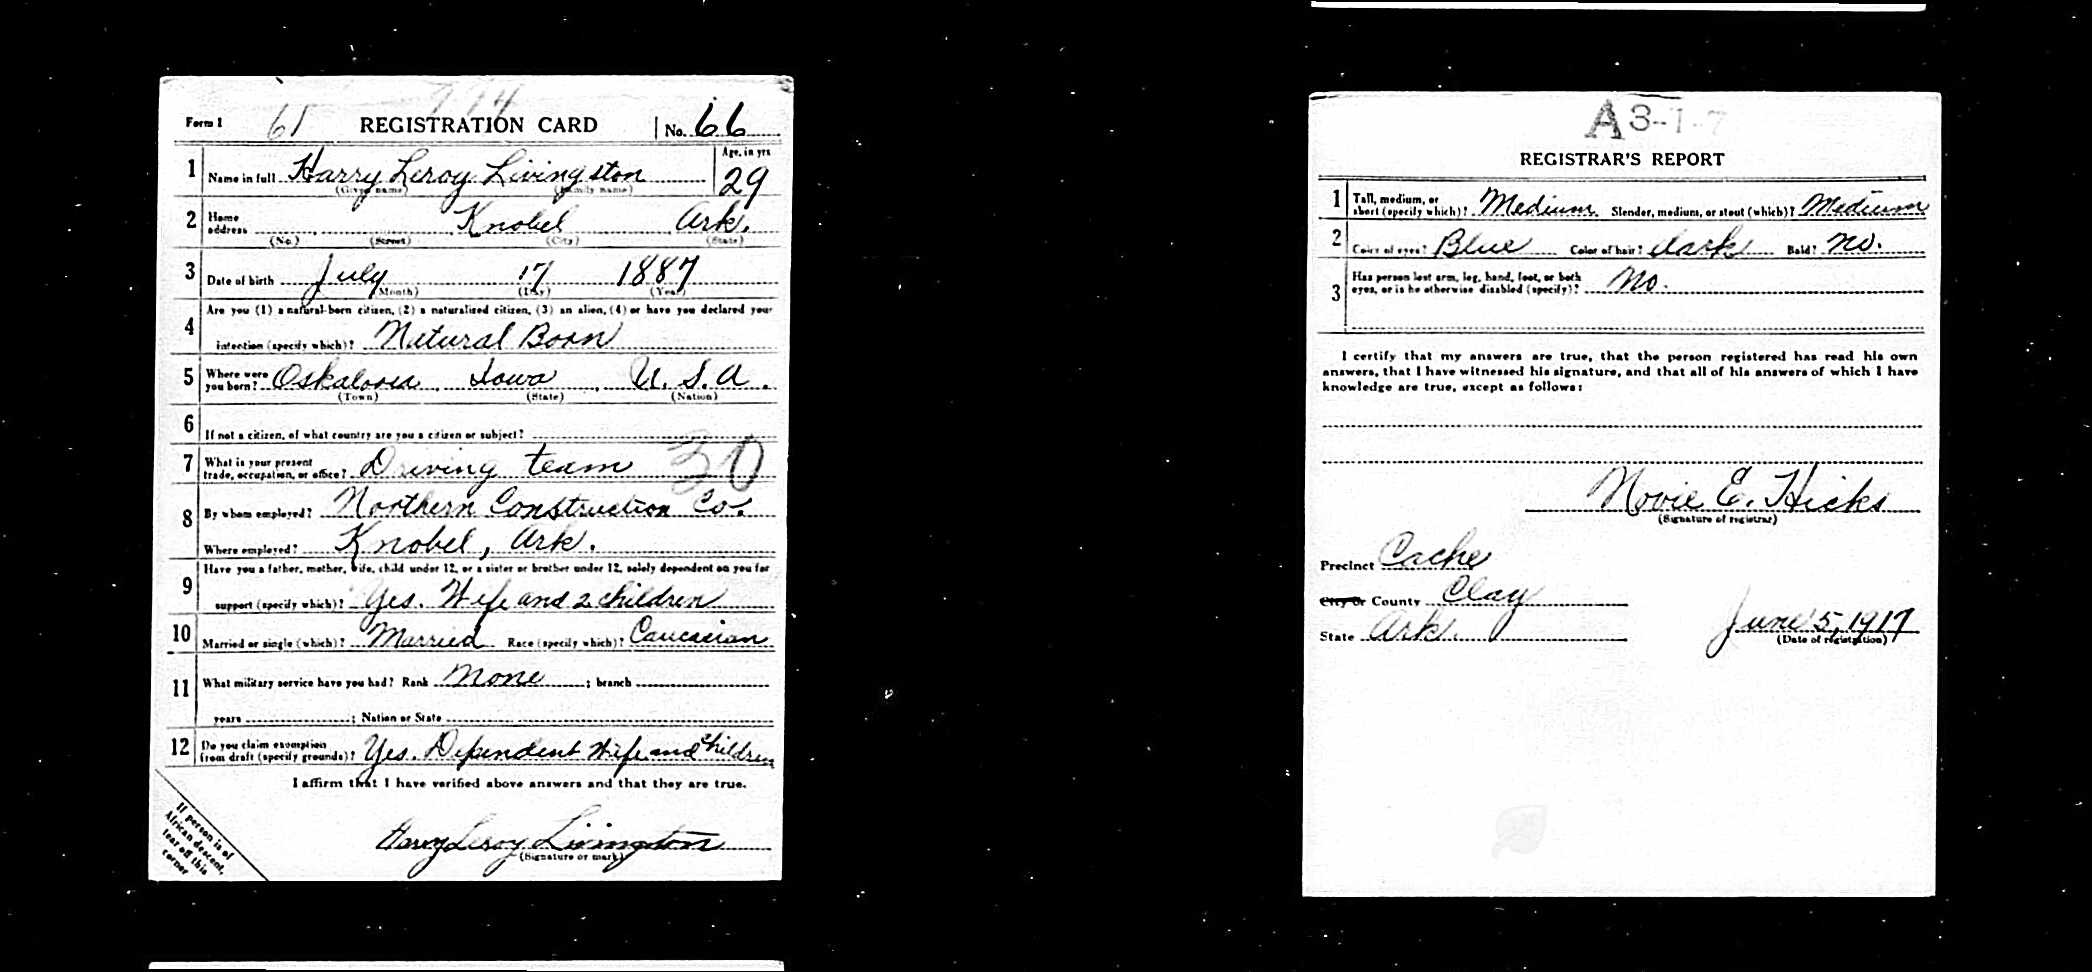 774
Form 1 61 REGISTRATION CARD No. 66
1 Name in full Harry Leroy Livingston Age, in yrs 29
(Given name) (Family name)
2 Home address Knobel Ark.
(No.) (Street) (City) (State)
3 Date of birth July 17 1887
(Month) (Day) (Year)
4 Are you (1) a natural-born citizen, (2) a naturalized citizen, (3) an alien, (4) or have you declared your
intention (specify which)? Natural Born
5 Where were you born? Oskaloosa Iowa U.S.A.
(Town) (State) (Nation)
6 If not a citizen, of what country are you a citizen or subject?
7 What is your present trade, occupation, or office? Driving team 30
8 By whom employed? Northern Construction Co.
Where employed? Knobel, Ark.
9 Have you a father, mother, wife, child under 12, or a sister or brother under 12, solely dependent on you for
support (specify which)? Yes. Wife and 2 children
10 Married or single (which)? Married Race (specify which)? Caucasian
11 What military service have you had? Rank None ; branch
years ; Nation or State
12 Do you claim exemption from draft (specify grounds)? Yes. Dependent Wife and Children
I affirm that I have verified above answers and that they are true.
Harry Leroy Livingston
(Signature or mark)
If person is of
African descent,
tear off this
corner
A 3-1-7
REGISTRAR'S REPORT
1 Tall, medium, or short (specify which)? Medium Slender, medium, or stout (which)? Medium
2 Color of eyes? Blue Color of hair? dark Bald? No.
3 Has person lost arm, leg, hand, foot, or both
eyes, or is he otherwise disabled (specify)? No.
I certify that my answers are true, that the person registered has read his own
answers, that I have witnessed his signature, and that all of his answers of which I have
knowledge are true, except as follows:
Novie E. Hicks
(Signature of registrar)
Precinct Cache
City or County Clay
State Ark. June 5, 1917
(Date of registration)